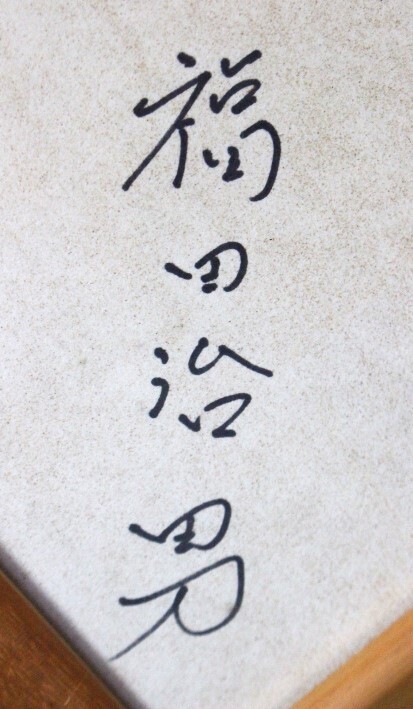 福田治男